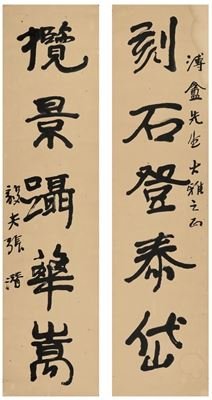 溥盦先生大雅之正
刻石登泰岱
攬景躡華嵩
毅夫張潛